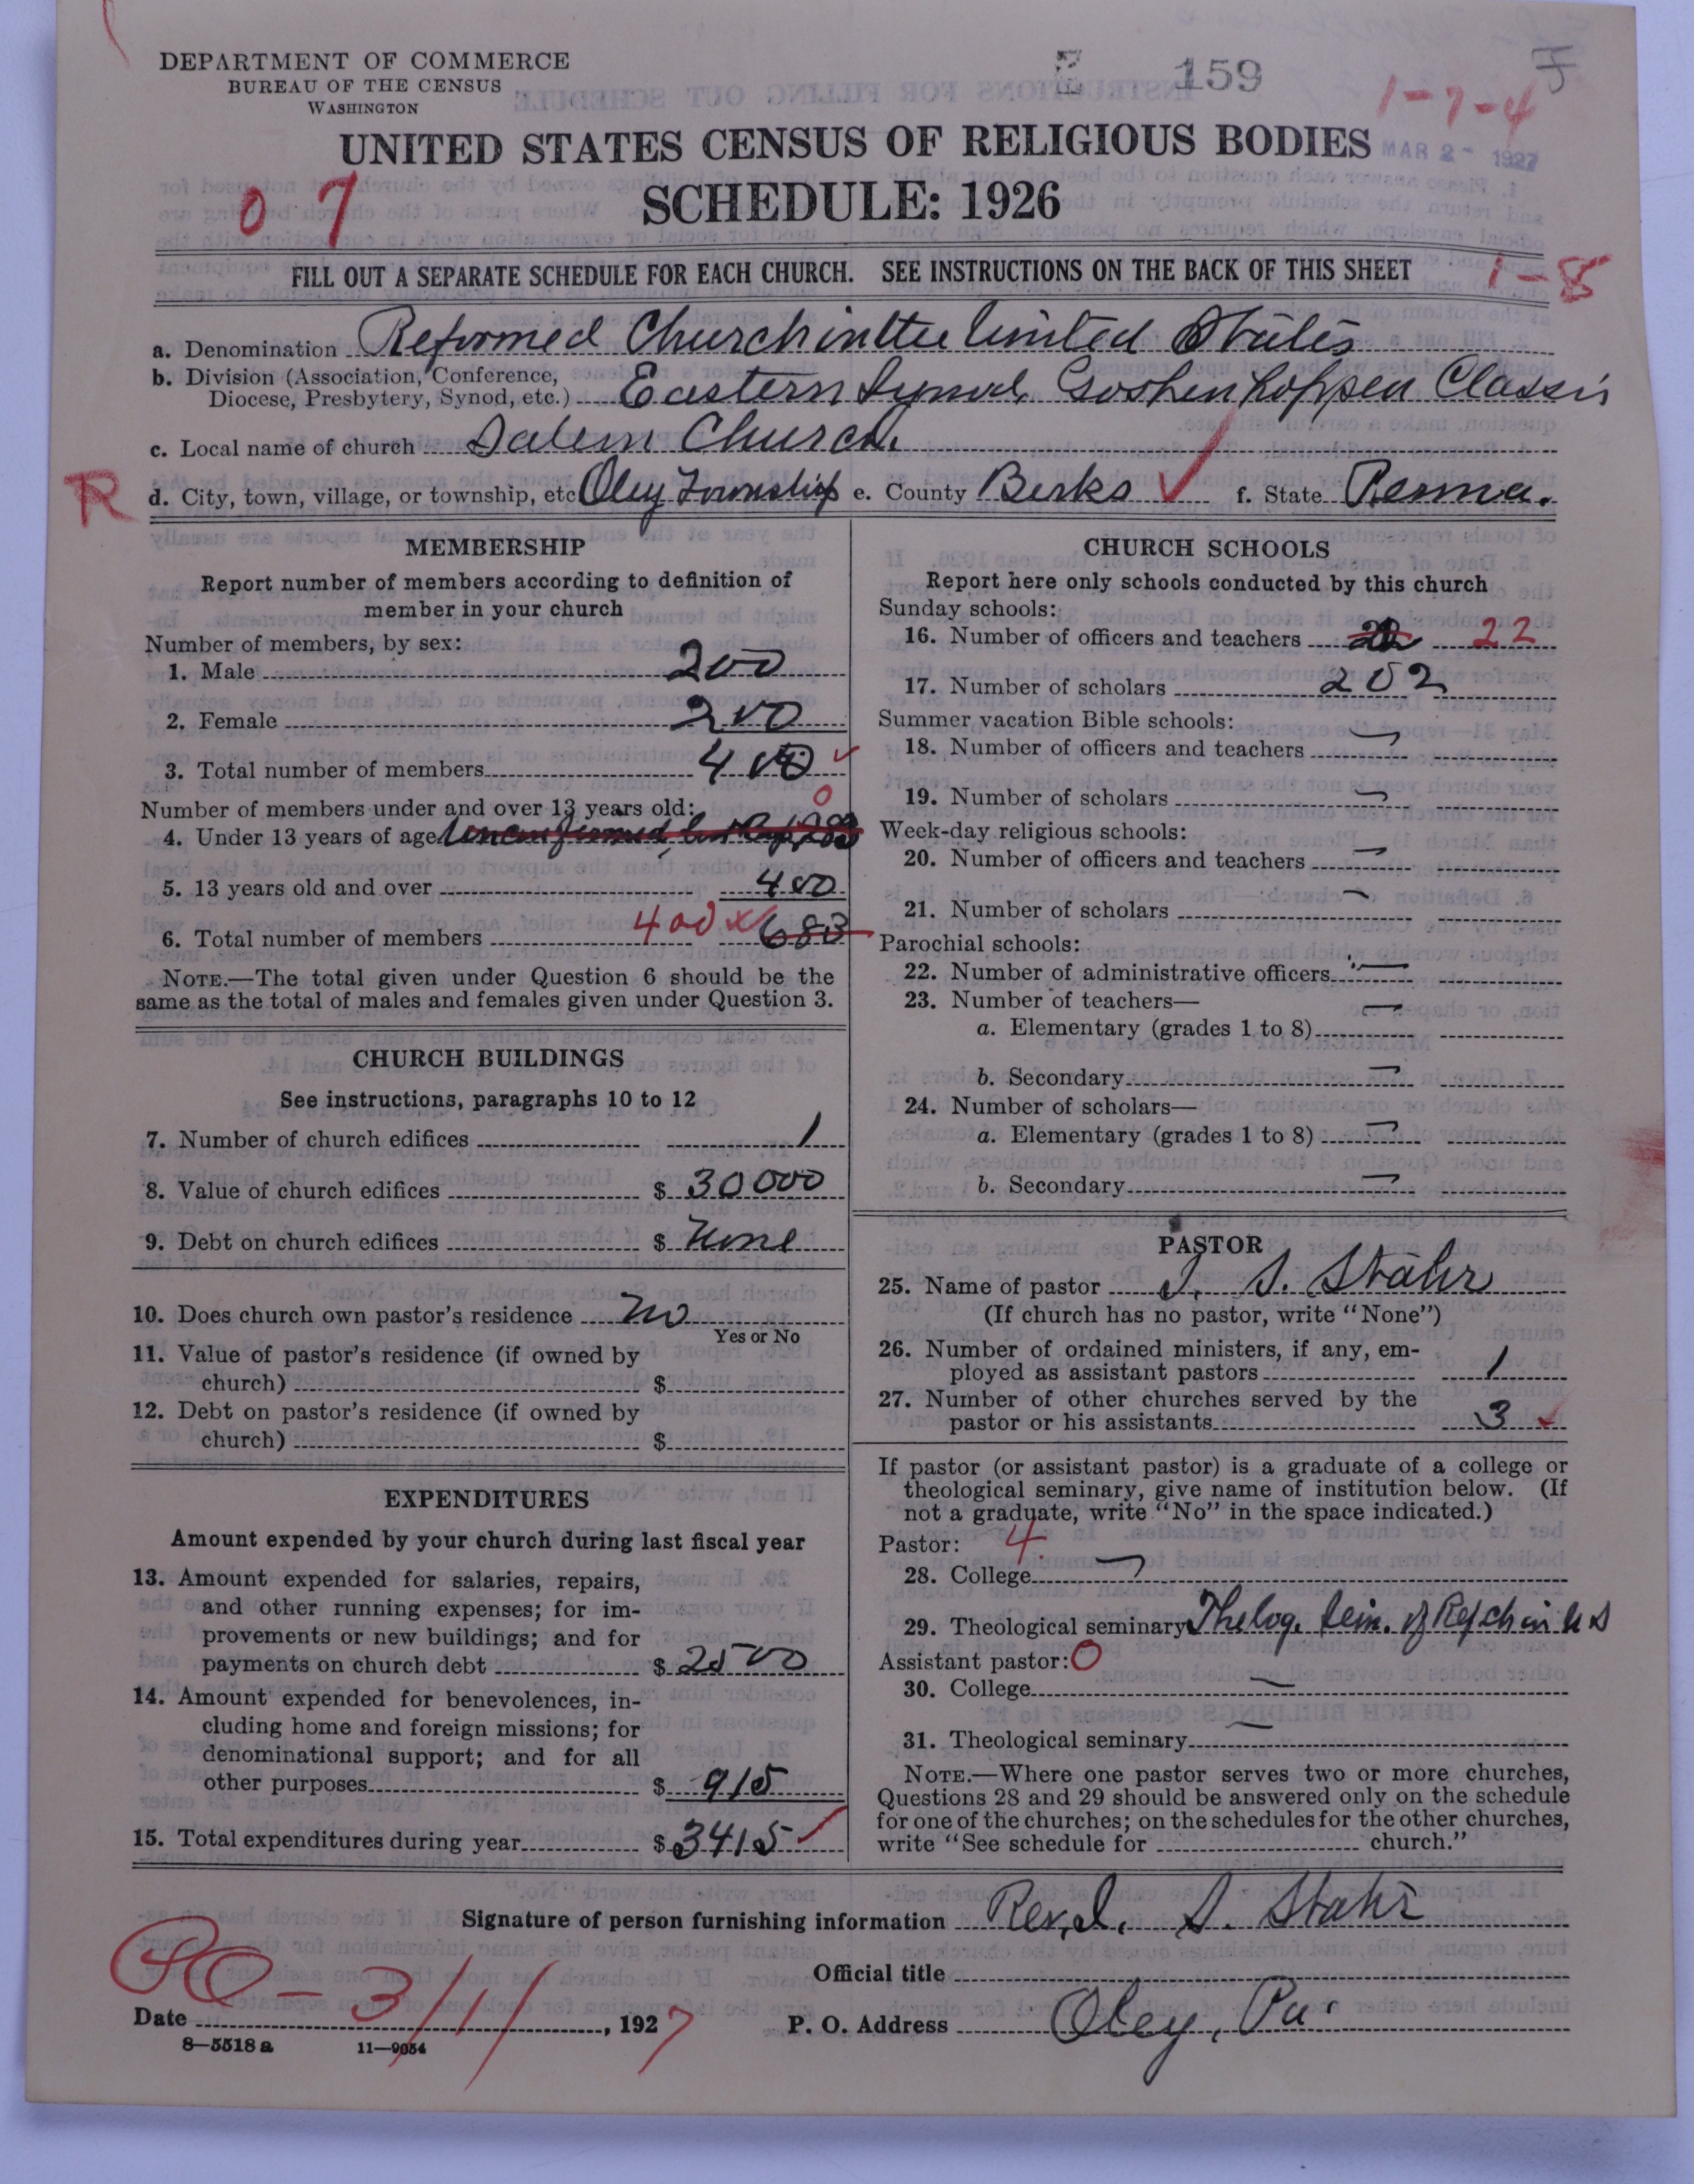 DEPARTMENT OF COMMERCE
BUREAU OF THE CENSUS
WASHINGTON
159
1-7-4
UNITED STATES CENSUS OF RELIGIOUS BODIES
MAR 2 - 1927
07
SCHEDULE: 1926
FILL OUT A SEPARATE SCHEDULE FOR EACH CHURCH. SEE INSTRUCTIONS ON THE BACK OF THIS SHEET
1-8
a. Denomination Reformed Church in the United States
b. Division (Association, Conference, Diocese, Presbytery, Synod, etc.) Eastern Synod, Goshenhoppen Classis
c. Local name of church Salem Church
R
d. City, town, village, or township, etc Oley Township e. County Berks f. State Penna.
MEMBERSHIP
Report number of members according to definition of
member in your church
Number of members, by sex:
1. Male 200
2. Female 200
3. Total number of members 400
Number of members under and over 13 years old:
0
4. Under 13 years of age Unconfirmed, but Bap, 283
5. 13 years old and over 400
6. Total number of members 400 x 683
NOTE.—The total given under Question 6 should be the
same as the total of males and females given under Question 3.
CHURCH BUILDINGS
See instructions, paragraphs 10 to 12
7. Number of church edifices 1
8. Value of church edifices $ 30000
9. Debt on church edifices $ None
10. Does church own pastor's residence No
Yes or No
11. Value of pastor's residence (if owned by
church) $
12. Debt on pastor's residence (if owned by
church) $
EXPENDITURES
Amount expended by your church during last fiscal year
13. Amount expended for salaries, repairs,
and other running expenses; for im-
provements or new buildings; and for
payments on church debt $ 2500
14. Amount expended for benevolences, in-
cluding home and foreign missions; for
denominational support; and for all
other purposes $ 915
15. Total expenditures during year $ 3415
CHURCH SCHOOLS
Report here only schools conducted by this church
Sunday schools:
16. Number of officers and teachers 22
17. Number of scholars 202
Summer vacation Bible schools:
18. Number of officers and teachers
19. Number of scholars
Week-day religious schools:
20. Number of officers and teachers
21. Number of scholars
Parochial schools:
22. Number of administrative officers
23. Number of teachers—
a. Elementary (grades 1 to 8)
b. Secondary
24. Number of scholars—
a. Elementary (grades 1 to 8)
b. Secondary
PASTOR
25. Name of pastor I. S. Stahr
(If church has no pastor, write "None")
26. Number of ordained ministers, if any, em-
ployed as assistant pastors 1
27. Number of other churches served by the
pastor or his assistants 3
If pastor (or assistant pastor) is a graduate of a college or
theological seminary, give name of institution below. (If
not a graduate, write "No" in the space indicated.)
Pastor: 4.
28. College
29. Theological seminary Theolog. Sem. of Ref ch in U S
Assistant pastor: 0
30. College
31. Theological seminary
NOTE.—Where one pastor serves two or more churches,
Questions 28 and 29 should be answered only on the schedule
for one of the churches; on the schedules for the other churches,
write "See schedule for church."
Signature of person furnishing information Rev. I. S. Stahr
Official title
Date PO - 3/1/, 1927
P. O. Address Oley, Pa.
8—5518 a 11—9054